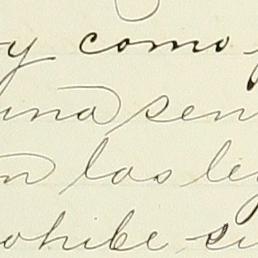 y como
una sen
n las ley
ohibe su